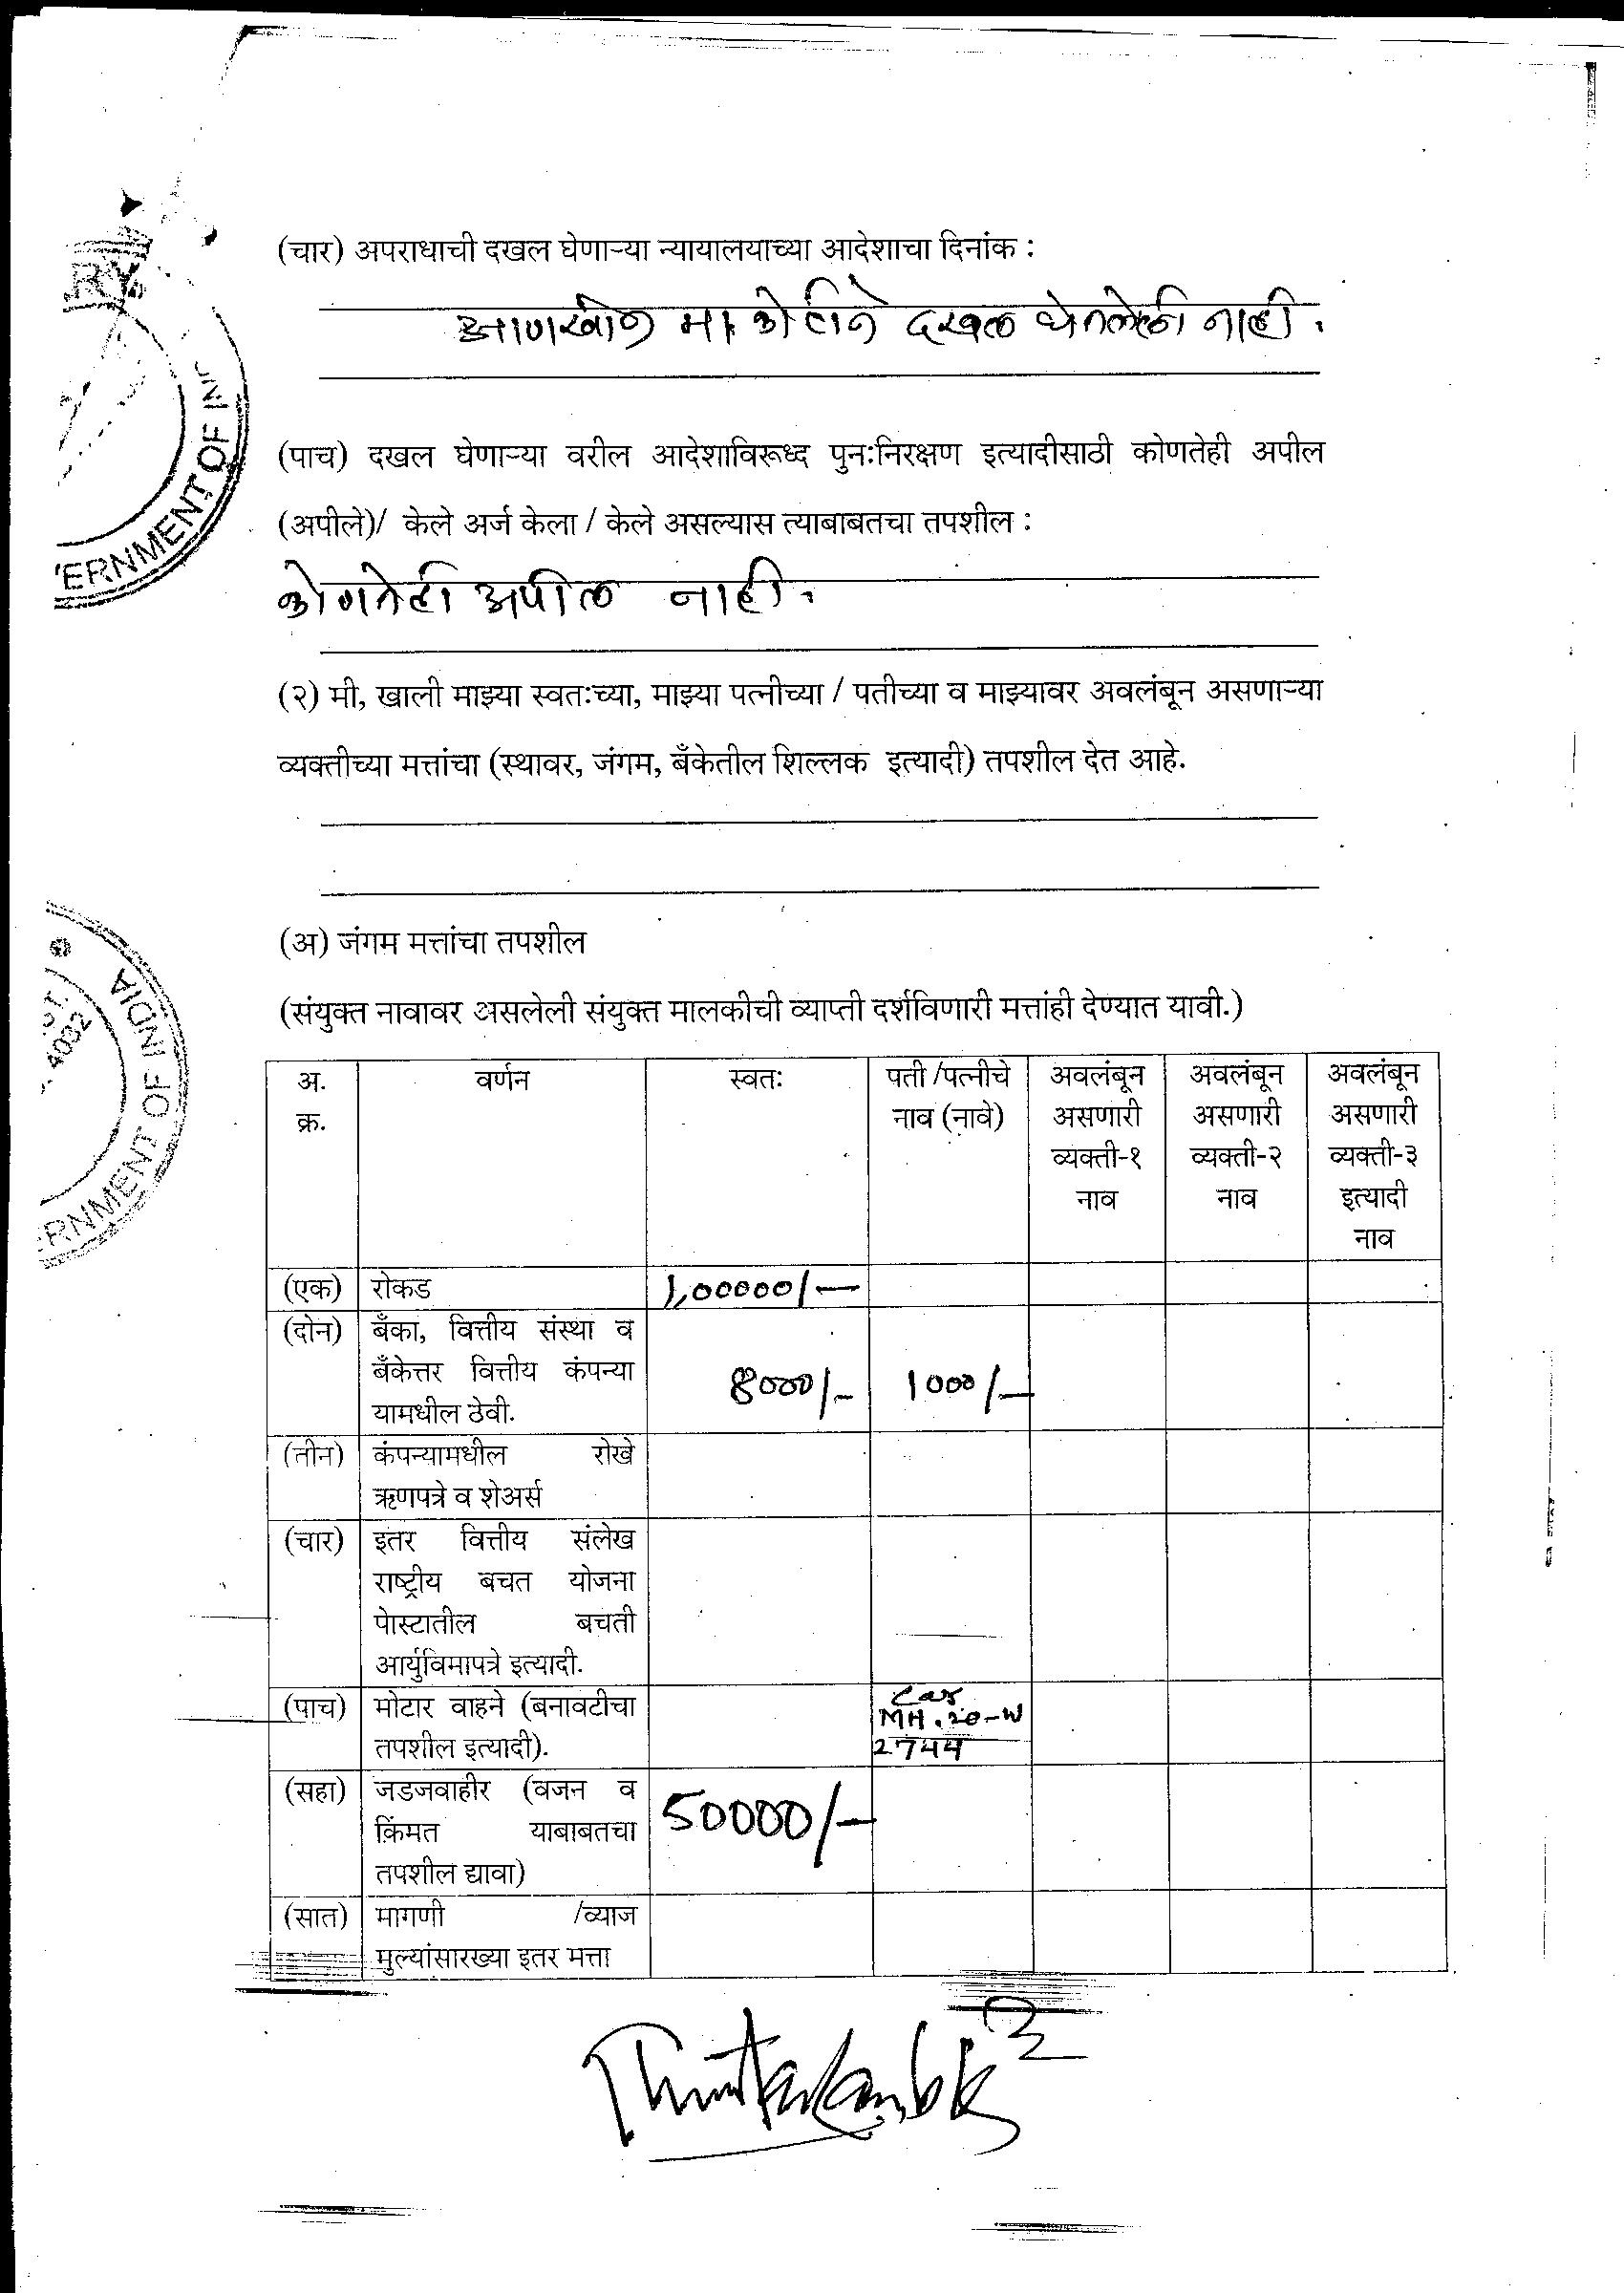 (चार) अपराधाची दखल घेणाऱ्या न्यायालयाच्या आदेशाचा दिनांक :
आणखीन मा. कोर्टाने दखल घेतलेली नाही.
(पाच) दखल घेणाऱ्या वरील आदेशाविरूध्द पुनःनिरक्षण इत्यादीसाठी कोणतेही अपील
(अपीले)/ केले अर्ज केला / केले असल्यास त्याबाबतचा तपशील :
कोणतेही अपील नाही.
(२) मी, खाली माझ्या स्वतःच्या, माझ्या पत्नीच्या / पतीच्या व माझ्यावर अवलंबून असणाऱ्या
व्यक्तीच्या मत्तांचा (स्थावर, जंगम, बँकेतील शिल्लक इत्यादी) तपशील देत आहे.
(अ) जंगम मत्तांचा तपशील
(संयुक्त नावावर असलेली संयुक्त मालकीची व्याप्ती दर्शविणारी मत्तांही देण्यात यावी.)
अ. वर्णन स्वतः पती /पत्नीचे अवलंबून अवलंबून अवलंबून
क्र. नाव (नावे) असणारी असणारी असणारी
व्यक्ती-१ व्यक्ती-२ व्यक्ती-३
नाव नाव इत्यादी
नाव
(एक) रोकड 1,00000/-
(दोन) बँका, वित्तीय संस्था व
बँकेत्तर वित्तीय कंपन्या 8000/- 1000/-
यामधील ठेवी.
(तीन) कंपन्यामधील रोखे
ऋणपत्रे व शेअर्स
(चार) इतर वित्तीय संलेख
राष्ट्रीय बचत योजना
पोस्टातील बचती
आर्युविमापत्रे इत्यादी.
Car
(पाच) मोटार वाहने (बनावटीचा MH.20-W
तपशील इत्यादी). 2744
(सहा) जडजवाहीर (वजन व
किंमत याबाबतचा 50000/-
तपशील द्यावा)
(सात) मागणी /व्याज
मुल्यांसारख्या इतर मत्ता
RY
ERNMENT OF IN
4032
RNMENT OF INDIA